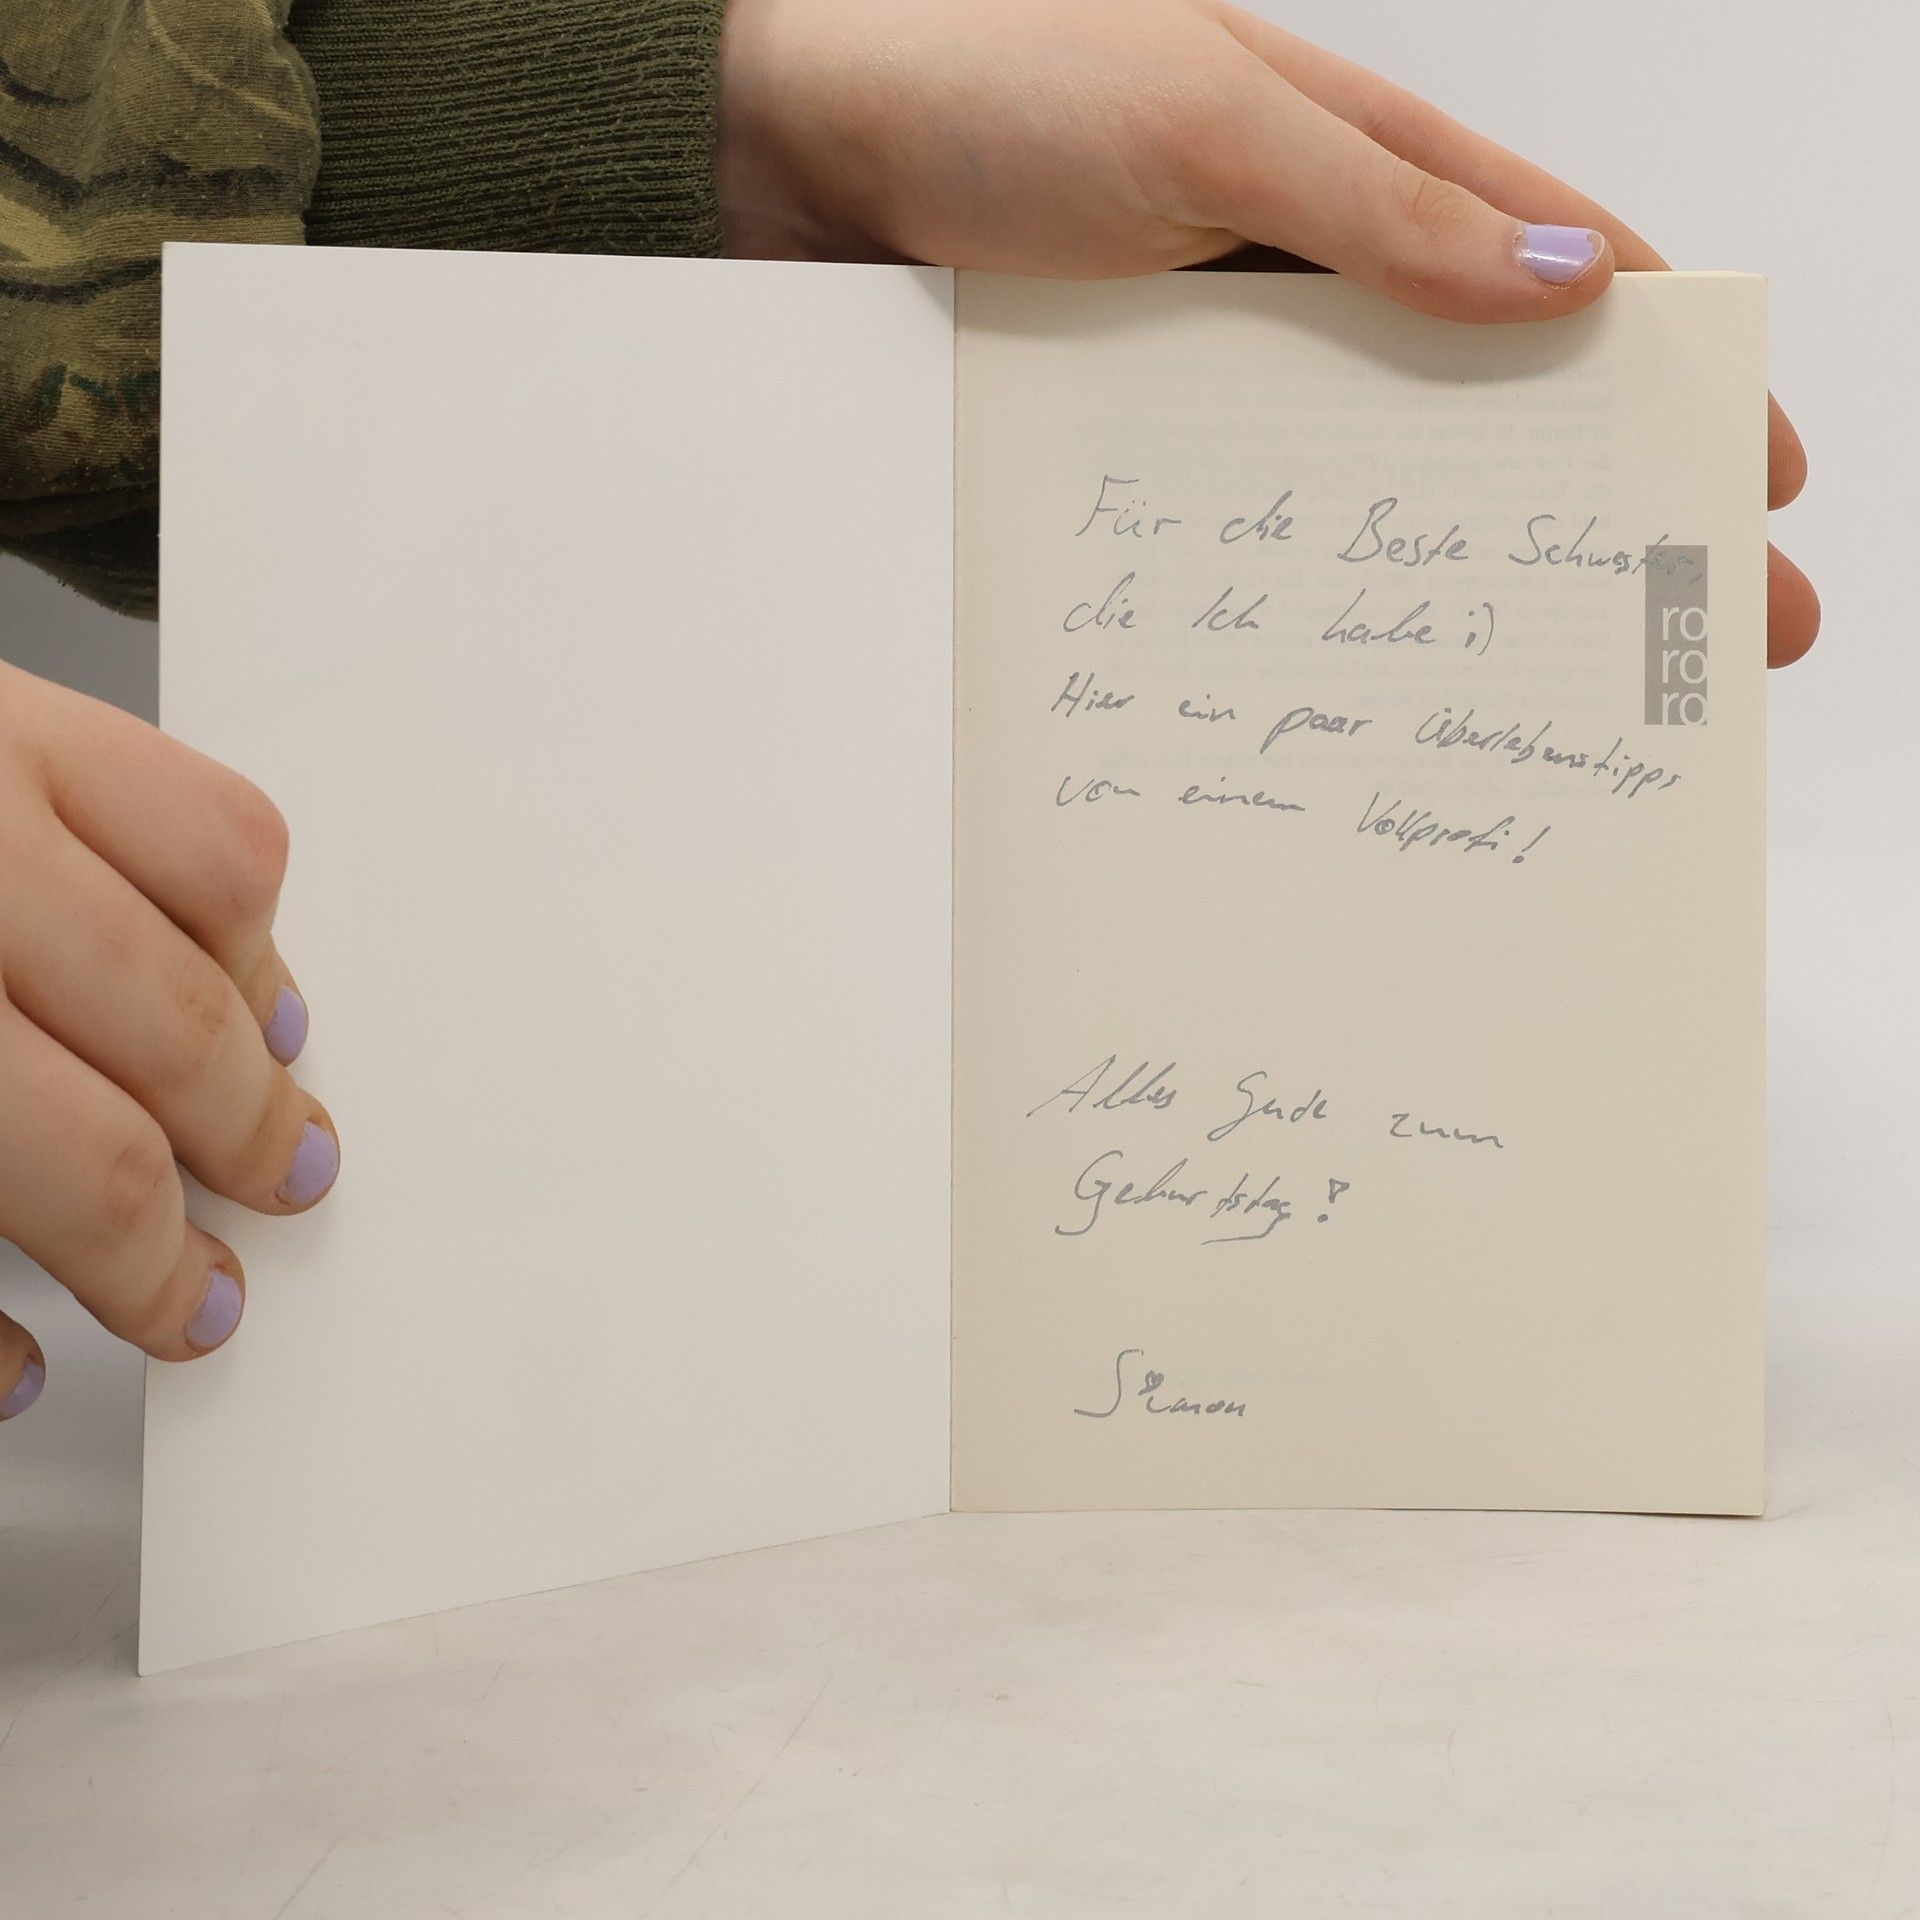 Für die Beste Schwester,
die Ich habe ;)
Hier ein paar Überlebenstipps
von einem Vollprofi!
Alles Gute zum
Geburtstag!
Simon
ro
ro
ro